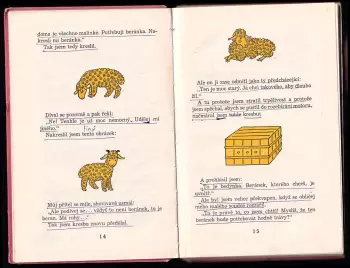 doma je všechno maličké. Potřebuji beránka. Na-
kresli mi beránka."
Tak jsem tedy kreslil.
Díval se pozorně a pak řekl:
„Ne! Tenhle je už moc nemocný. Udělej mi
jiného."
Nakreslil jsem tento obrázek:
Můj přítel se mile, shovívavě usmál:
„Ale podívej se... vždyť to není beránek, to je
beran. Má rohy..."
Tak jsem kresbu znovu předělal.
14
Ale on ji zase odmítl jako ty předcházející:
„Ten je moc starý. Já chci takového, aby dlouho
žil."
A tu protože jsem ztratil trpělivost a protože
jsem spěchal, abych se pustil do rozebírání motoru,
načmáral jsem tuhle kresbu:
A prohlásil jsem:
„To je bedýnka. Beránek, kterého chceš, je
uvnitř."
Ale byl jsem velmi překvapen, když se obličej
mého malého soudce rozjasnil.
„To je právě to, co jsem chtěl! Myslíš, že ten
beránek bude potřebovat hodně trávy?"
15